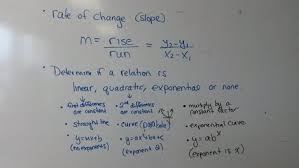 • rate of change (slope)
m = rise/run = y₂-y₁/x₂-x₁
• Determine if a relation is
linear, quadratic, exponential or none.
• first differences are constant
• straight line
• y=mx+b (no exponents)
• 2nd differences are constant
• curve (parabola)
• y=ax²+bx+c (exponent 2)
• multiply by a constant factor
• exponential curve
• y=ab^x (exponent is x)